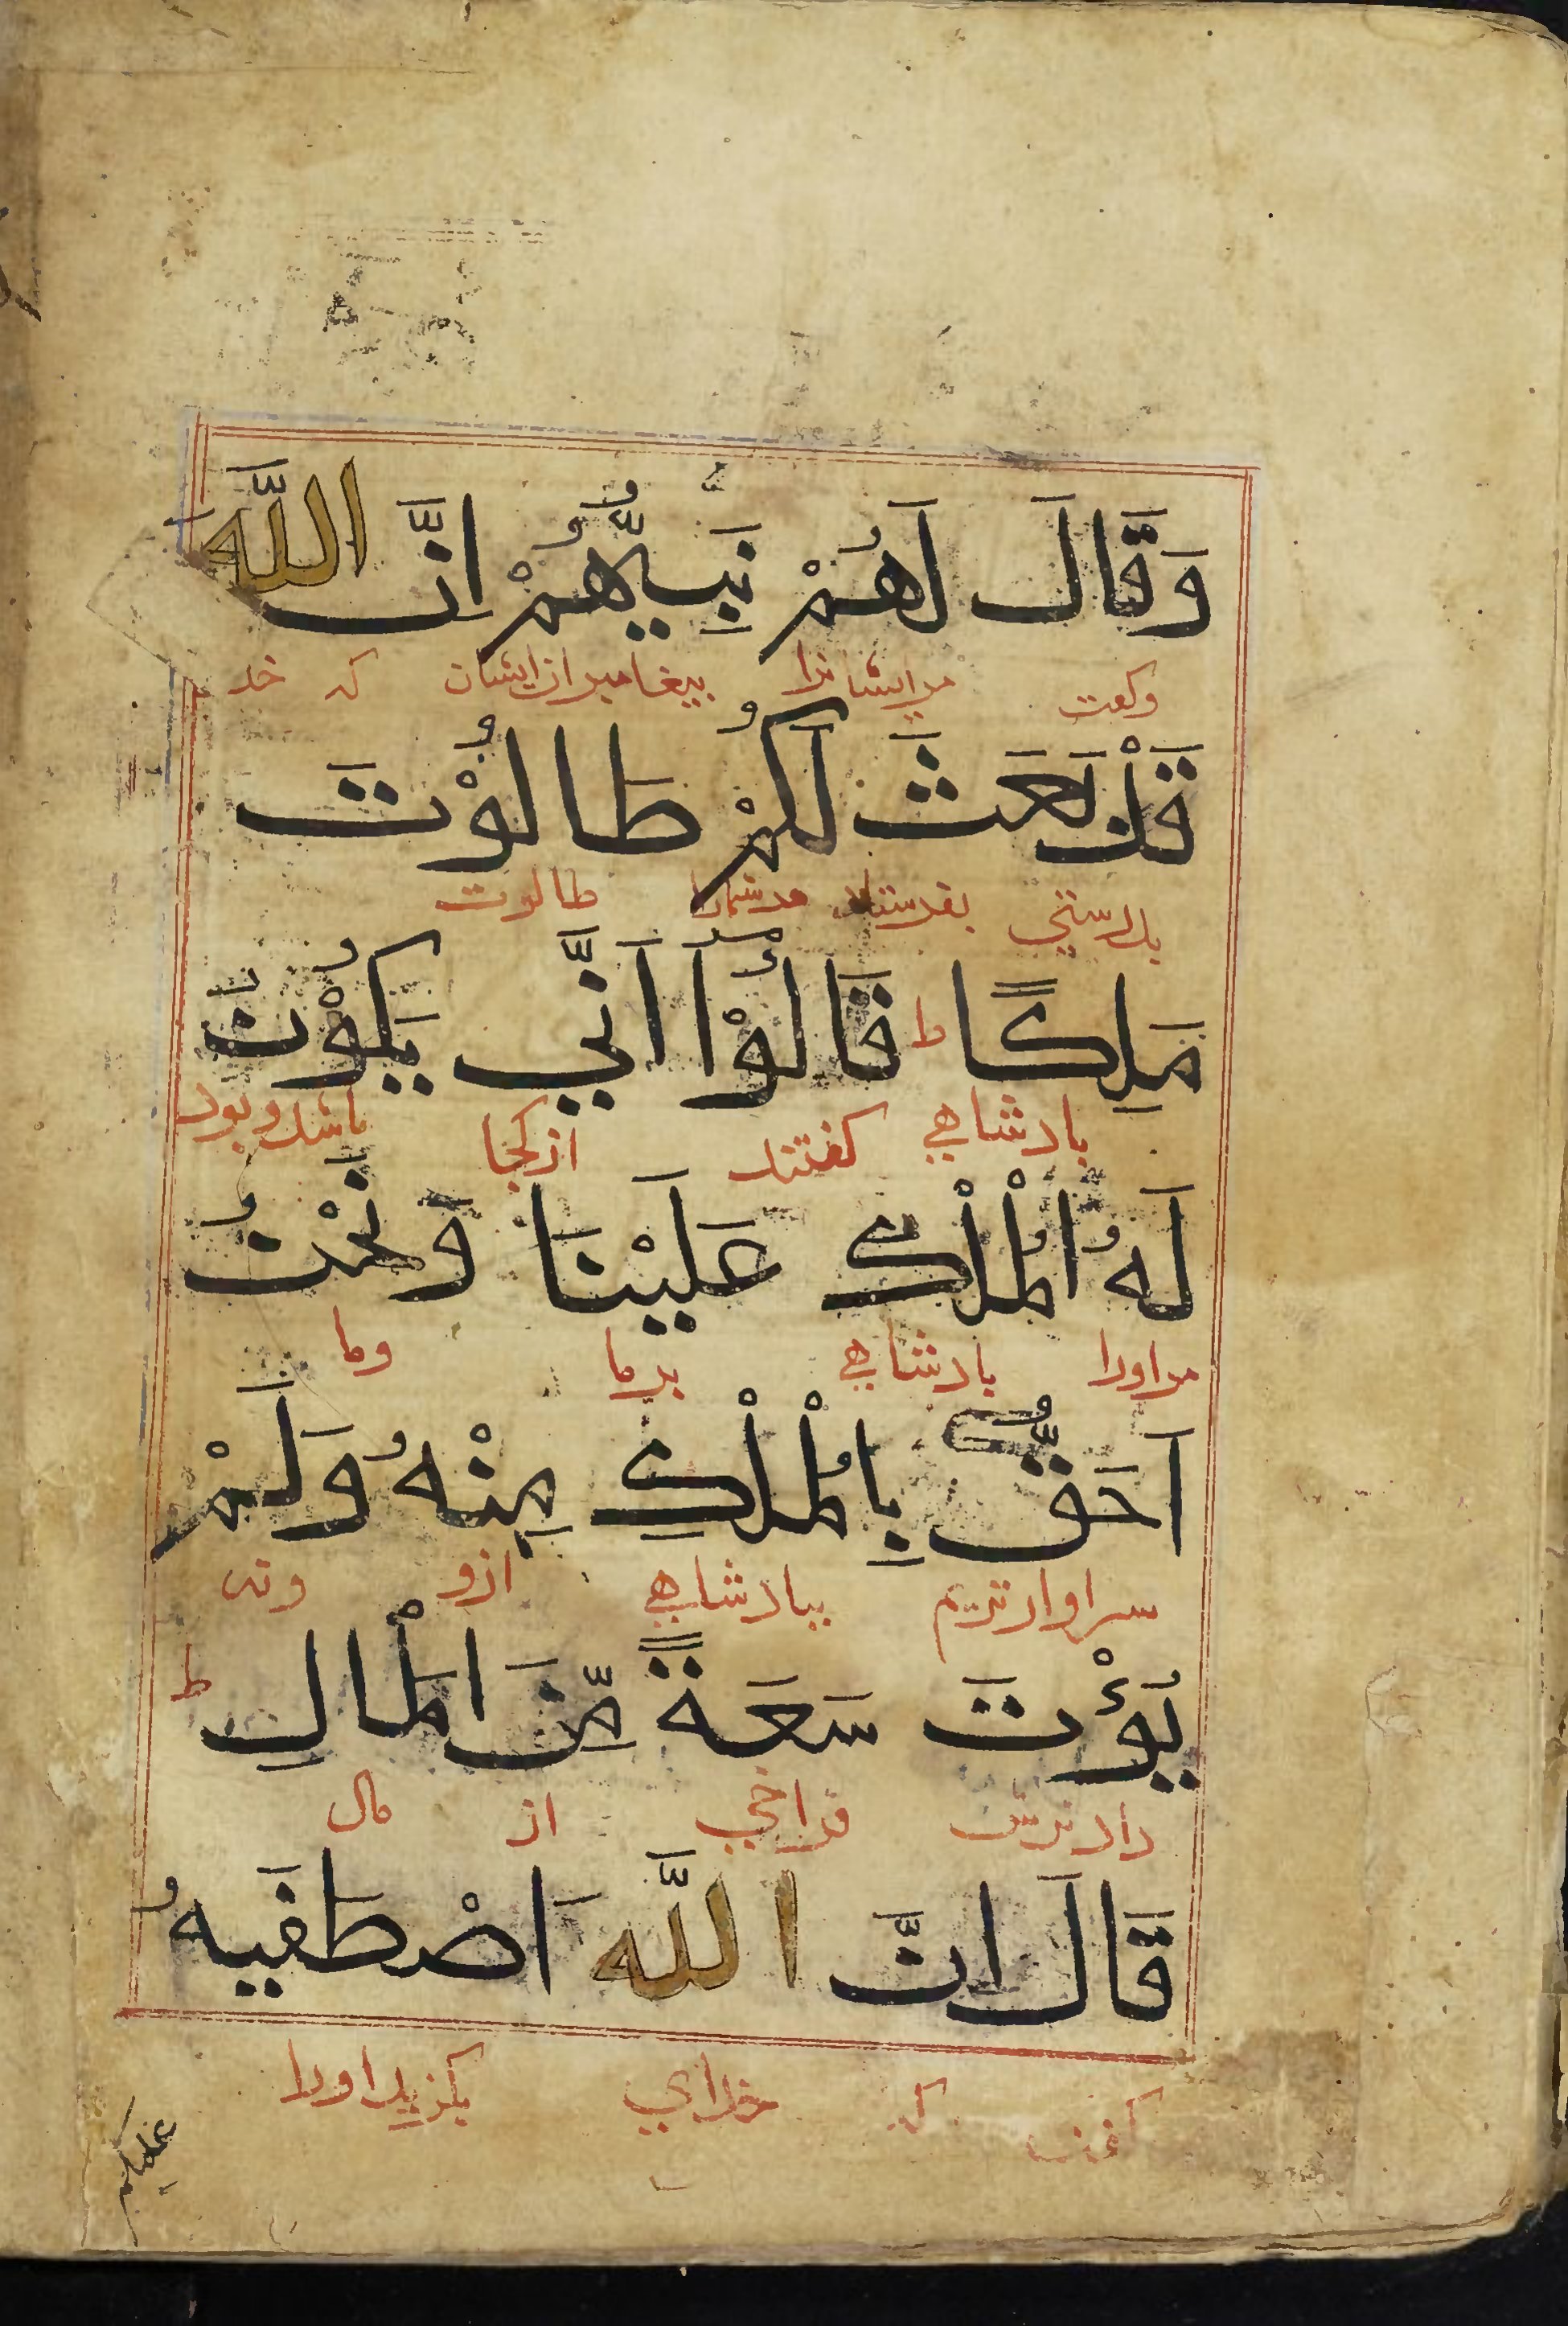 وَقَالَ لَهُمْ نَبِيُّهُمْ اِنَّ اللَّهَ
وكفت مرایشانرا بیغامبر ازایشان که خد
قَدْ بَعَثَ لَكُمْ طَالُوْتَ
بدرستي بفرستاد مرشمارا طالوت
مَلِكًا ط قَالُوْٓا اَنَّي يَكُوْنُ
بادشاهي كفتند ازكجا باشد وبود
لَهُ الْمُلْكُ عَلَيْنَا وَنَحْنُ
مراورا بادشاهي برما وما
اَحَقُّ بِالْمُلْكِ مِنْهُ وَلَمْ
سزاوارتریم ببادشاهي ازو ونه
يُؤْتَ سَعَةً مِّنَ الْمَالِ ط
دادندش فراخي از مال
قَالَ اِنَّ اللَّهَ اصْطَفَيهُ
كفت که خداي بكزید اورا
عليكم